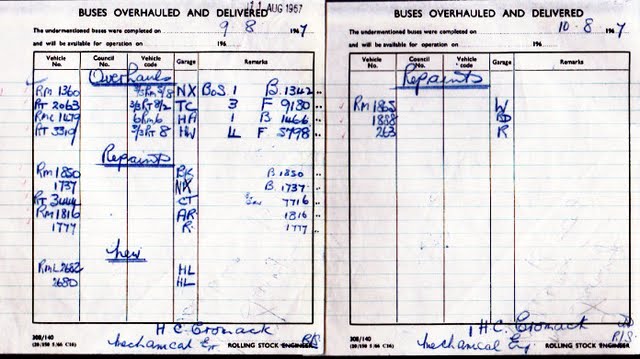 11 AUG 1967
BUSES OVERHAULED AND DELIVERED
The undermentioned buses were completed on 9 8 1967
and will be available for operation on 196
Vehicle No. Council No. Vehicle code Garage Remarks
Overhauls
RM 1360 NX BoS 1 B.1342
RT 2063 TC 3 F 9180
RMC 1479 6RM6 HA 1 B 1466
RT 3319 HW 4 F 5798
Repaints
RM 1850 B.1850
1737 NX B.1737
RT CT 7716
RM 1816 AR 1816
1777 R. 1777
New
RML 2682 HL
2680 HL
H C. Cromack
Mechanical Er ROLLING STOCK ENGINEER
308/140
BUSES OVERHAULED AND DELIVERED
The undermentioned buses were completed on 10-8- 1967
and will be available for operation on 196
Vehicle No. Council No. Vehicle code Garage Remarks
Repaints
RM 1865 W
1888
263 R
H.C. Cromack
Mechanical Eng. ROLLING STOCK ENGINEER
308/140